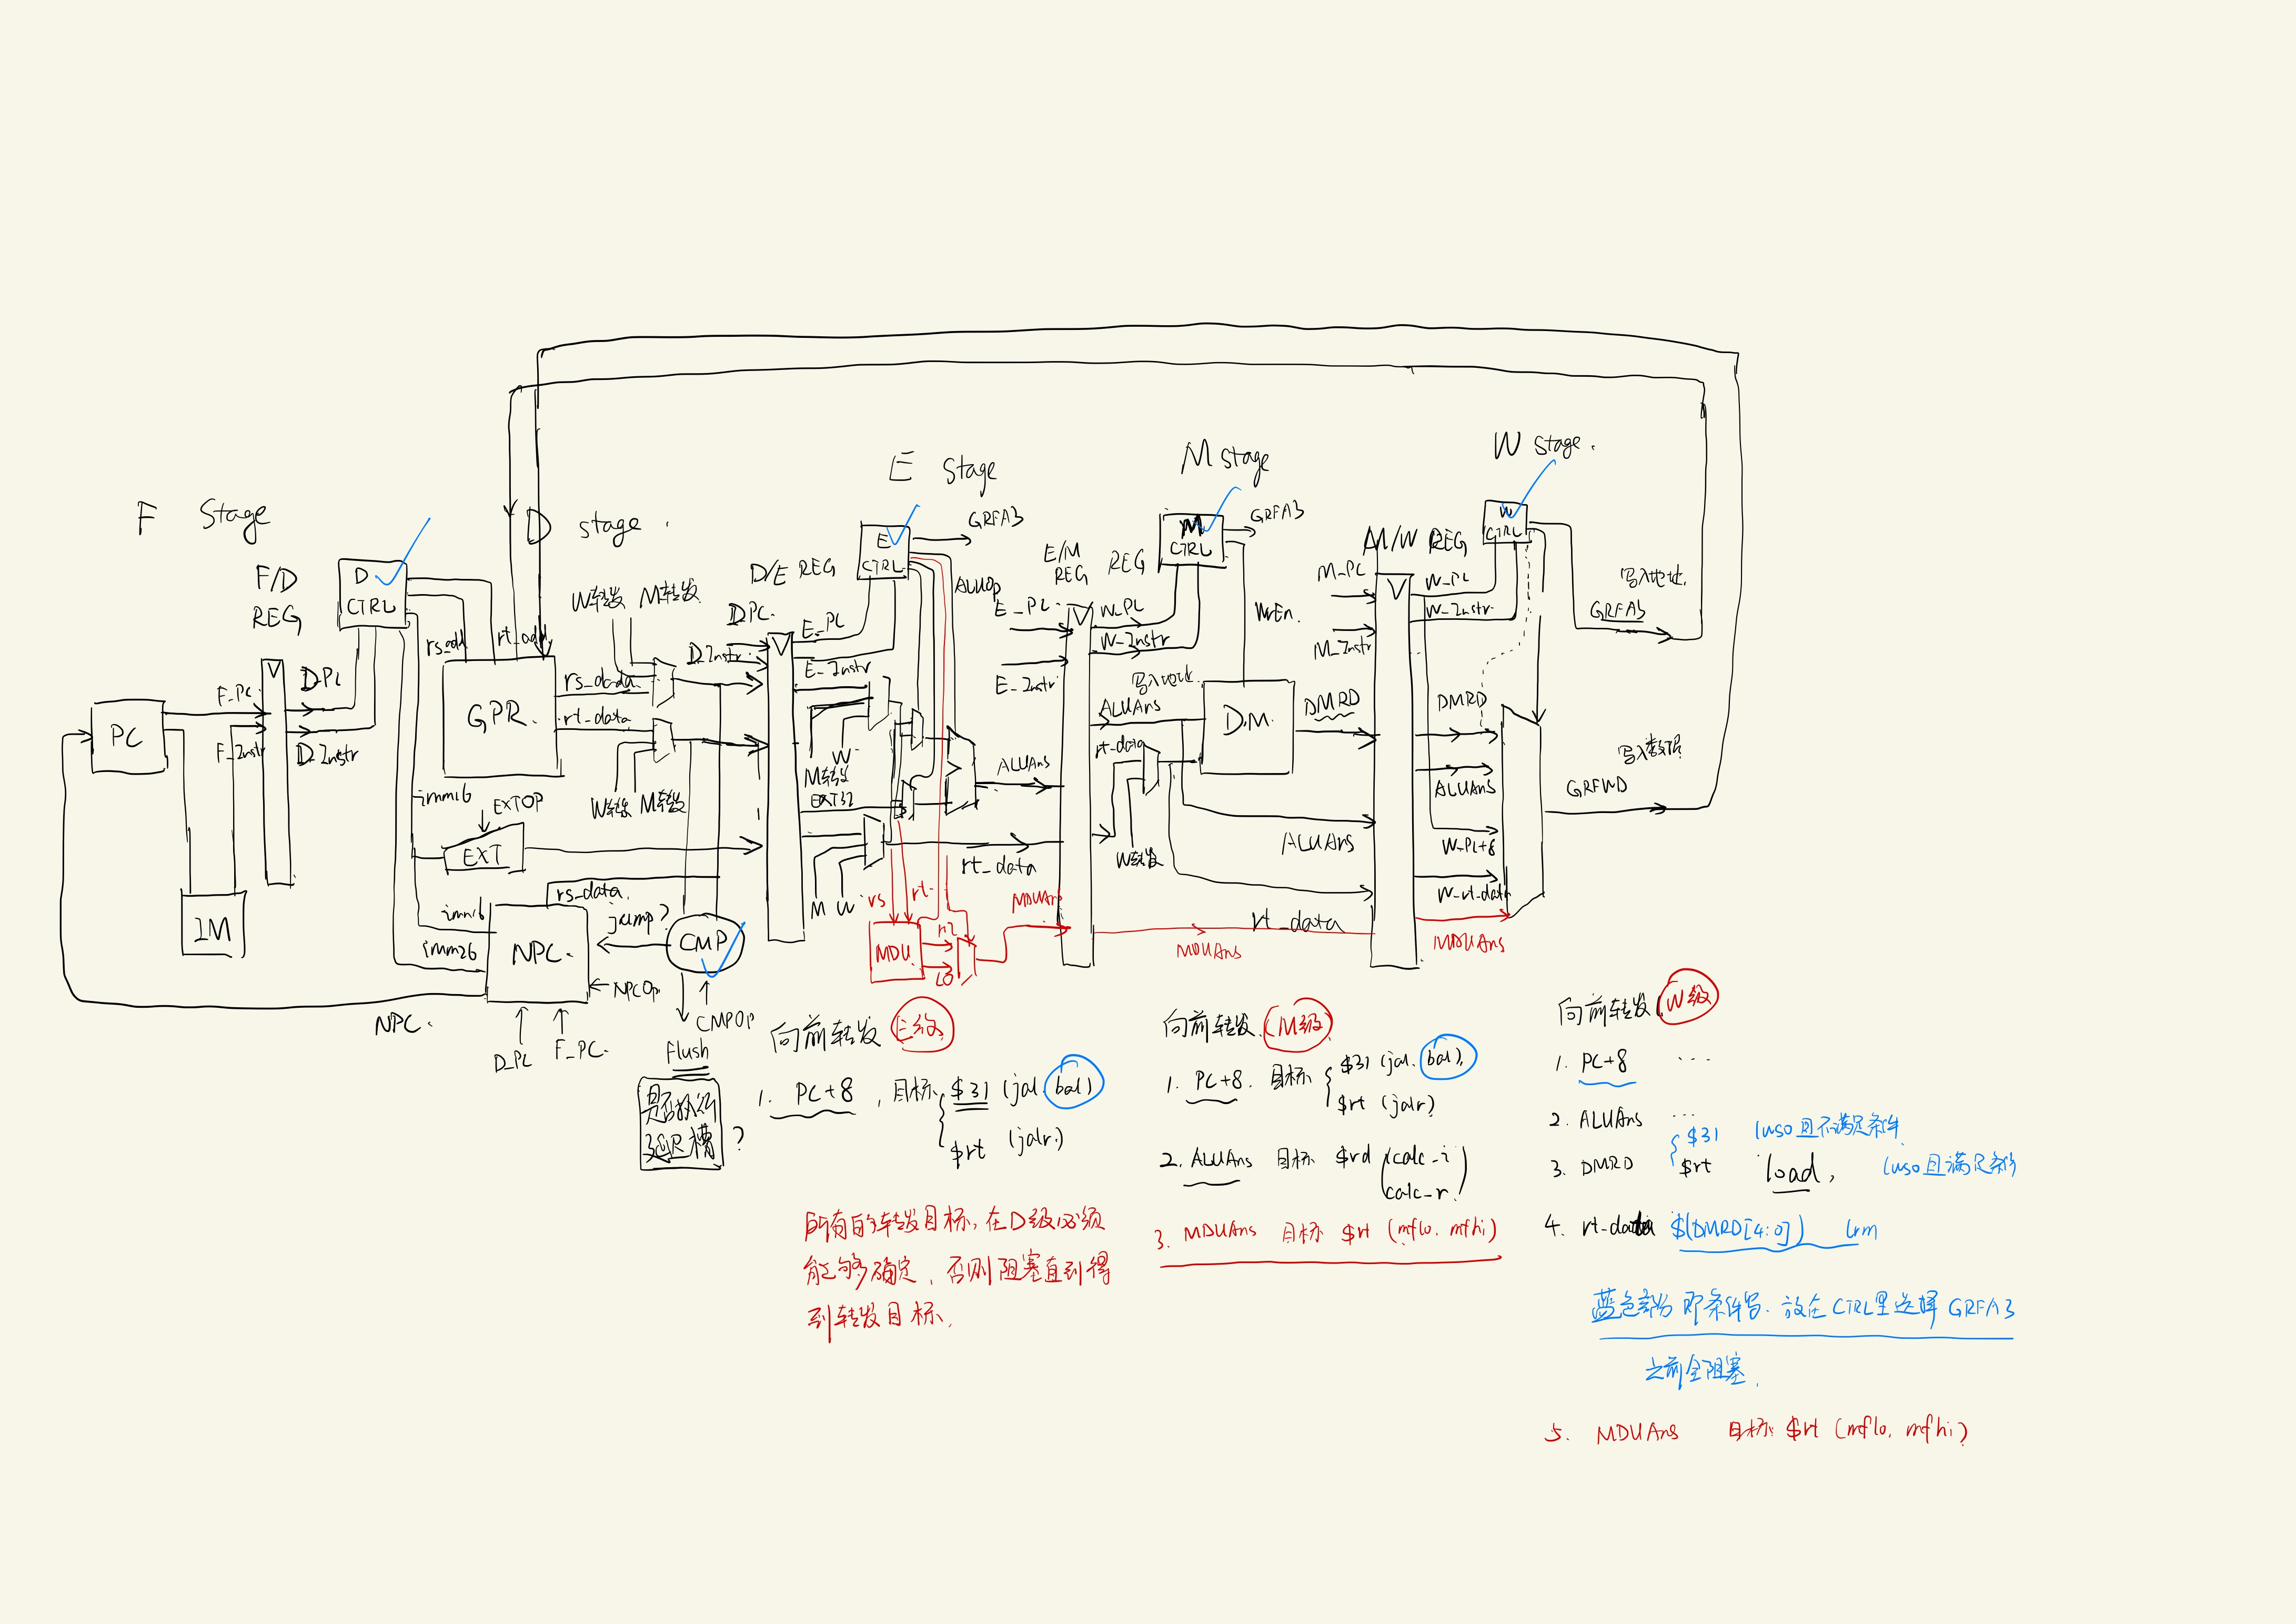 F Stage
D stage .
E Stage
M stage
W stage .
F/D
REG
D
CTRL
D/E REG
E
CTRL
GRFA3
ALUOp
E/M
REG
REG
M
CTRL
GRFA3
WrEn.
M/W REG
W
CTRL
写入地址.
GRFA3
PC
F_PC
F_Instr
IM
D_PC
D_Instr
rs_add
rt_addr
GPR.
rs_data
rt_data
W转发 M转发
W转发 M转发
imm16
EXTOP
EXT
rs_data
jump?
imm16
imm26
NPC.
NPCOp
NPC.
D_PC
F_PC.
CMP
CMPOP
Flush
是否执行
延迟槽
?
D_PC.
D_Instr.
E_PC
E_Instr
W
M转发
EXT32
M W
rs
rt
MDU
HI
LO
ALUAns
rt_data
MDUAns
E_PC.
E_Instr
W_PC
W_Instr
写入地址
ALUAns
rt_data
W转发
DM.
DMRD
ALUAns
rt_data
MDUAns
M_PC
M_Instr
W_PC
W_Instr.
DMRD
ALUAns
W_PC+8
W_rt_data
MDUAns
写入数据
GRFWD
向前转发 E级
1. PC+8 , 目标 $31 (jal. bal)
$rt (jalr.)
所有的转发目标, 在D级必须
能够确定, 否则阻塞直到得
到转发目标.
向前转发. M级
1. PC+8. 目标 $31 (jal. bal).
$rt (jalr)
2. ALUAns 目标 $rd (calc_i
calc_r.)
3. MDUAns 目标 $rt (mflo. mfhi)
向前转发 W级
1. PC+8 ...
2. ALUAns ...
$31 lwso且不满足条件
3. DMRD $rt load, lwso且满足条件
4. rt_data $(DMRD[4:0]) lrm
蓝色部分即条件写. 放在CTRL里选择GRFA3
之前全阻塞.
5. MDUAns 目标 $rt (mflo. mfhi)